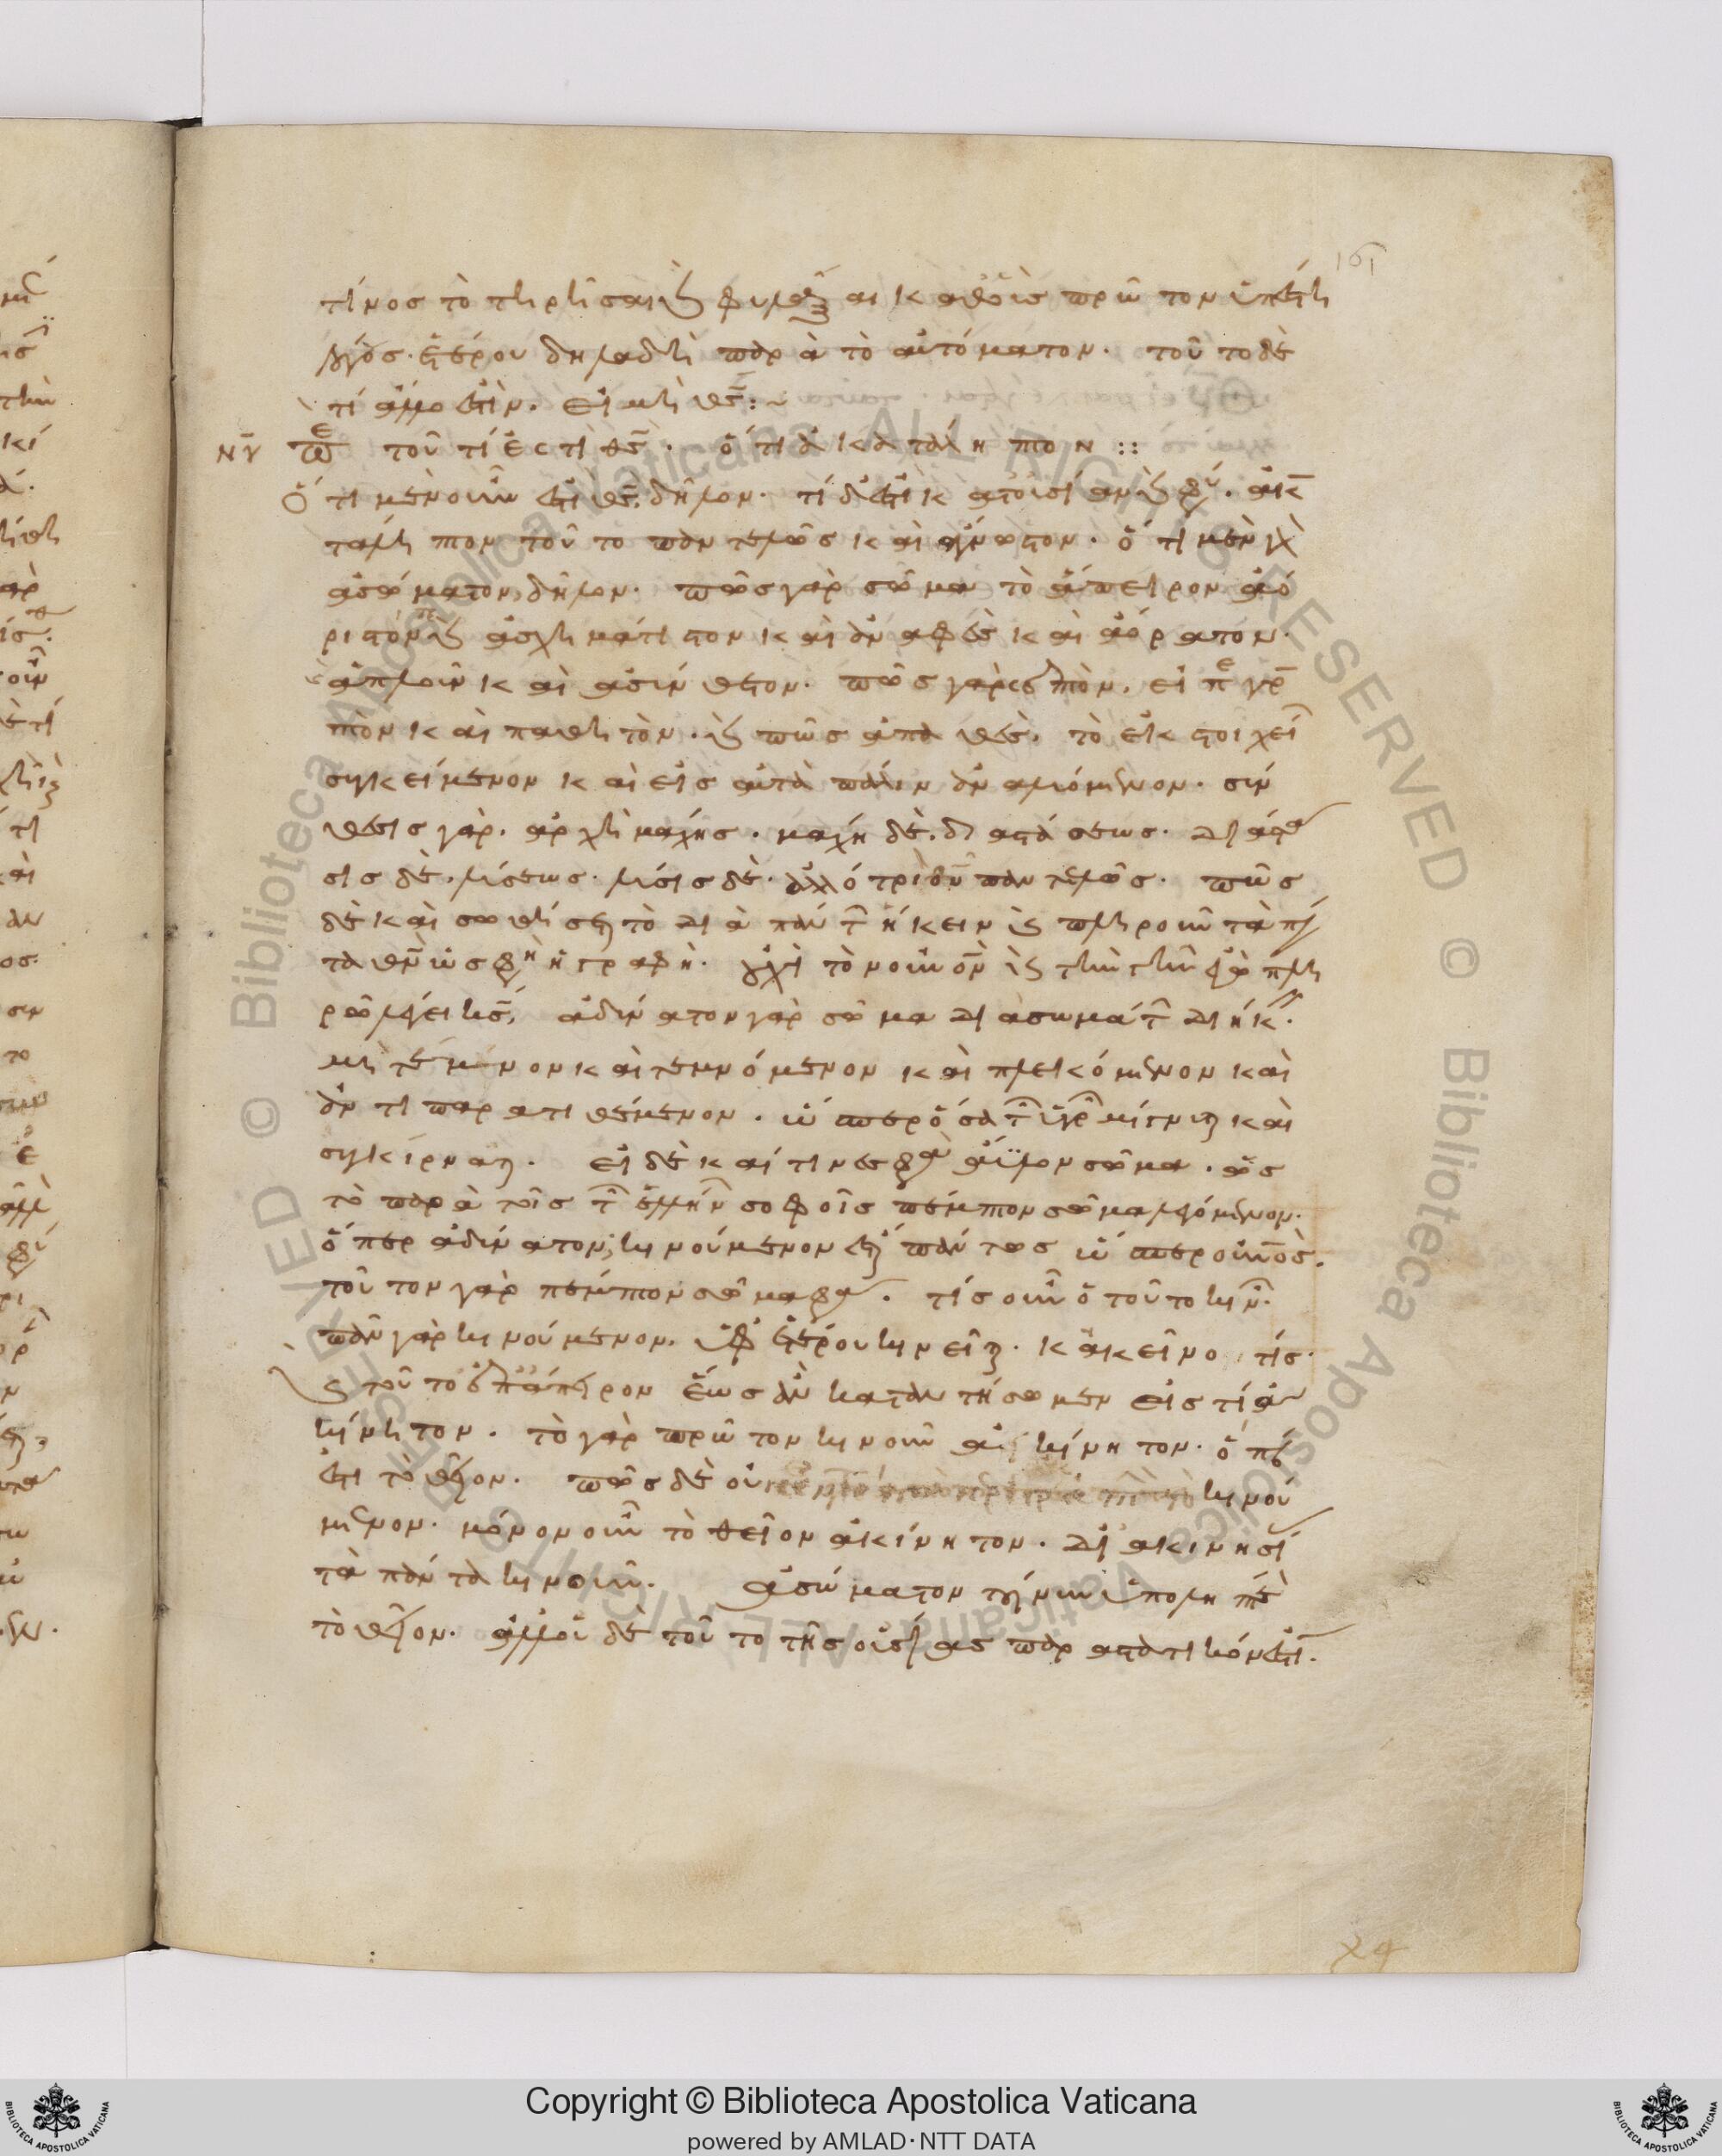 161
τίνος τὸ τηρῆσαι καὶ φυλάξαι καθ' οὓς πρῶτον ὑπέστη
λόγους. ἑτέρου δηλαδὴ παρὰ τὸ αὐτόματον. τοῦτο δὲ
τί ἄλλο ἐστὶν. εἰ μὴ θς:~
νγ περὶ τοῦ τί ἐστὶ θς. ὅτι ἀκατάληπτον ::
Ὅτι μὲν οὖν ἐστι θς, δῆλον. τί δέ ἐστι κατ' οὐσίαν καὶ φύσιν. ἀκα
τάληπτον τοῦτο παντελῶς καὶ ἄγνωστον. ὅτι μὲν γὰρ
ἀσώματον, δῆλον. πῶς γὰρ σῶμα τὸ ἄπειρον καὶ ἀό
ριστον καὶ ἀσχημάτιστον καὶ ἀναφὲς καὶ ἀόρατον.
ἁπλοῦν καὶ ἀσύνθετον. πῶς γὰρ σεπτὸν, εἰ περιγρα
πτὸν καὶ παθητὸν. καὶ πῶς ἀπαθὲς, τὸ ἐκ στοιχείων
συγκείμενον καὶ εἰς αὐτὰ πάλιν ἀναλυόμενον. σύν
θεσις γὰρ, ἀρχὴ μάχης. μάχη δὲ, διαστάσεως. διάστα
σις δὲ, λύσεως. λύσις δὲ, ἀλλότριον θυ παντελῶς. πῶς
δὲ καὶ σωθήσεται τὸ διὰ πάντων ἥκειν καὶ πληροῦν τὰ πάν
τα θν ὥς φησιν ἡ γραφή. οὐχὶ τὸν οὐνον καὶ τὴν γῆν ἐγὼ πλη
ρῶ λέγει κς; ἀδύνατον γὰρ σῶμα διὰ σωμάτων διήκειν.
μὴ τέμνον καὶ τεμνόμενον καὶ πλεκόμενον καὶ
ἀντιπαρατιθέμενον. ὥσπερ ὅσα τῶν ὑγρῶν μίγνυται καὶ
συγκίρναται. εἰ δὲ καί τινές φασιν ἄϋλον σῶμα. ὡς
τὸ παρὰ τοῖς τῶν ἑλλήνων σοφοῖς πέμπτον σῶμα λεγόμενον.
ὅπερ ἀδύνατον, κινούμενον ἔσται πάντως ὥσπερ ὁ οὐνος.
τοῦτον γὰρ πέμπτον σῶμά φασιν. τίς οὖν ὁ τοῦτο κινῶν.
πᾶν γὰρ κινούμενον, ὑφ' ἑτέρου κινεῖται. κἀκεῖνο τίς.
καὶ τοῦτο ἐπ' ἄπειρον ἕως ἂν καταντήσωμεν εἴς τι ἀ
κίνητον. τὸ γὰρ πρῶτον κινοῦν ἀκίνητον. ὅπερ
ἐστι τὸ θεῖον. πῶς δὲ οὐκ κινού
μενον. μόνον οὖν τὸ θεῖον ἀκίνητον. δι' ἀκινησίας
τὰ πάντα κινοῦν. ἀσώματον τοίνυν ὑποληπτέον
τὸ θεῖον. ἀλλ' οὐδὲ τοῦτο τῆς οὐσίας παραστατικόν ἐστι.
Copyright © Biblioteca Apostolica Vaticana
powered by AMLAD·NTT DATA